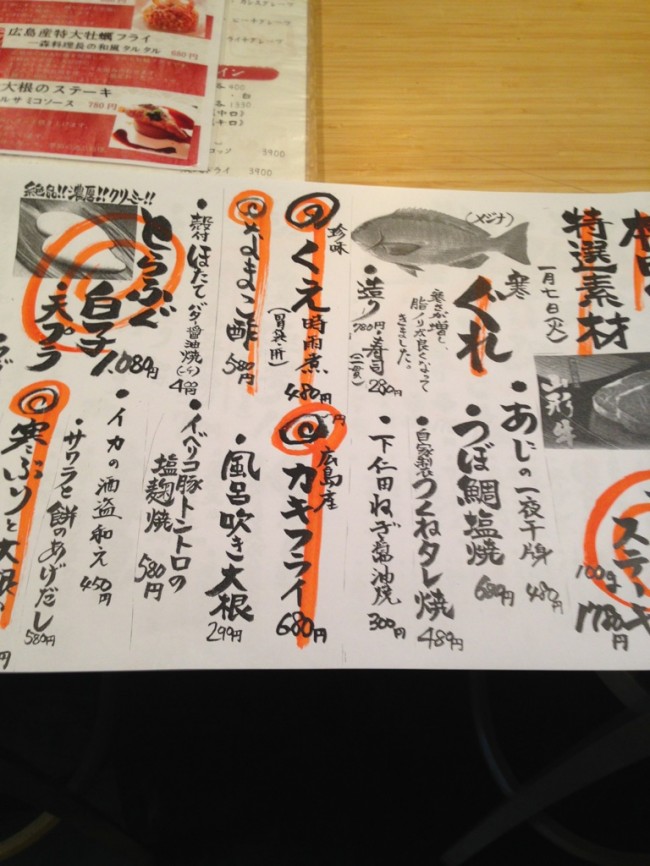 広島産特大牡蠣フライ
一森料理長の和風タルタル
680円
大根のステーキ
ルサミコソース 780円
3900
3900
特選素材
一月七日(火)
山形牛
ステーキ
100g
1780円
・あじの一夜干し
480円
・うぼ鯛塩焼
680円
寒ぐれ
(メジナ)
寒さが増し、
脂ノリ大良くなって
きました。
・造り
780円
・寿司
(二貫)
280円
・自家製つくねタレ焼
489円
・下仁田ねぎ醤油焼
300円
珍味
くえ時雨煮
(胃袋・肝)
480円
広島産
カキフライ
680円
なまこ酢
580円
・風呂吹き大根
299円
・殻付ほたてバタ醤油焼
・イベリコ豚トントロの
塩麹焼
580円
絶品!!濃厚!!クリーミー!!
とらふぐ
白子
天プラ
1,080円
・イカの酒盗和え
450円
・サワラと餅のあげだし
580円
寒ぶりと大根
円